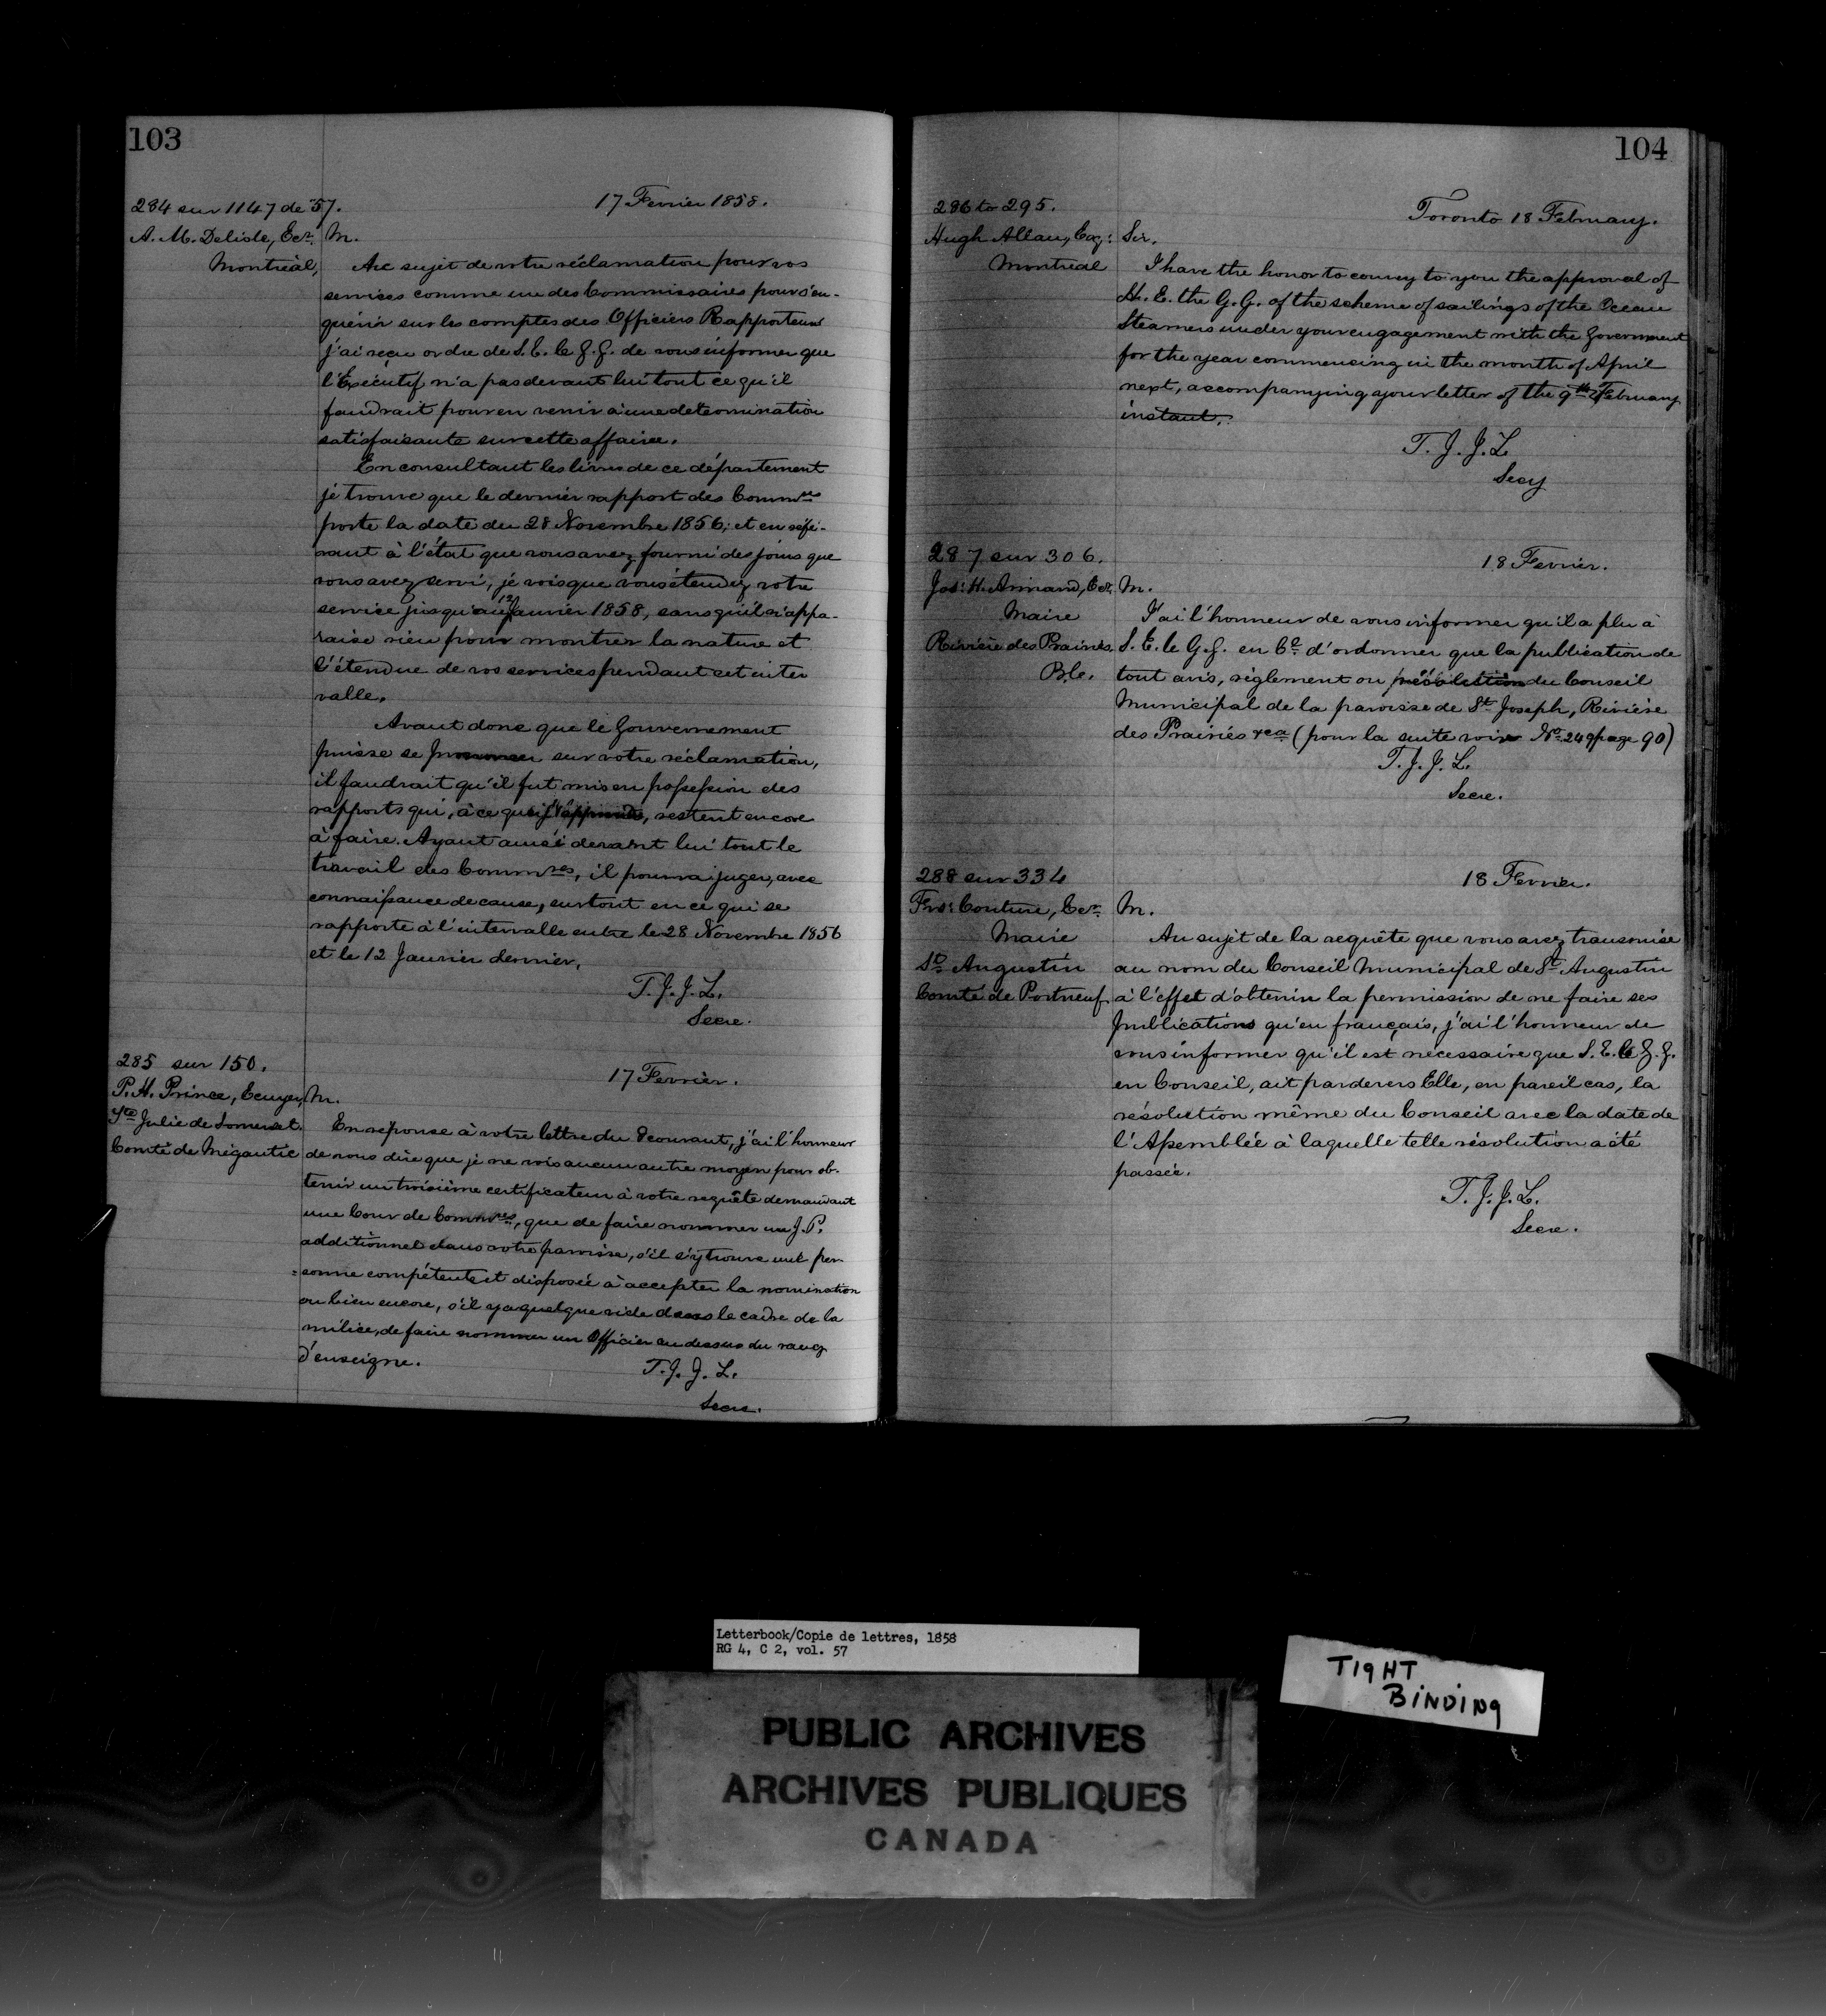 103
284 sur 1147 de '57.
17 Fevrier 1858.
A. M. Delisle, Ecr.
Montréal,
M.
Au sujet de votre réclamation pour vos
services comme un des Commissaires pour s'en-
quérir sur les comptes des Officiers Rapporteurs
j'ai reçu ordre de S. E. le G. G. de vous informer que
l'Exécutif n'a pas devant lui tout ce qu'il
faudrait pour en venir à une determination
satisfaisante sur cette affaire.
En consultant les livres de ce département
je trouve que le dernier rapport des Commres
porte la date du 28 Novembre 1856; et en réfé-
rant à l'état que vous avez fourni des jours que
vous avez servi, je vois que vous étendez votre
service jusqu'au 12 Janvier 1858, sans qu'il n'appa-
raise rien pour montrer la nature et
l'étendue de vos services pendant cet inter
valle.
Avant donc que le Gouvernement
puisse se prononcer sur votre réclamation,
il faudrait qu'il fut mis en possession des
rapports qui, à ce que j'apprends, restent encore
à faire. Ayant ainsi devant lui tout le
travail des Commres, il pourra juger, avec
connaissance de cause, surtout en ce qui se
rapporte à l'intervalle entre le 28 Novembre 1856
et le 12 Janvier dernier.
T. J. J. L.
Secre.
285 sur 150.
17 Fevrier.
P. H. Prince, Ecuyer,
Ste Julie de Somerset.
Comté de Mégantic
M.
En réponse à votre lettre du 8 courant, j'ai l'honneur
de vous dire que je ne vois aucun autre moyen pour ob-
tenir un troisième certificateur à votre requête demandant
une Cour de Commres, que de faire nommer un J. P.
additionnel dans votre paroisse, s'il s'y trouve une per-
=sonne compétente et disposée à accepter la nomination
ou bien encore, s'il y a quelque vide dans le cadre de la
milice, de faire nommer un Officier au dessus du rang
d'enseigne.
T. J. J. L.
Secre.
104
286 to 295.
Toronto 18 February.
Hugh Allan, Esq:
Montreal
Sir,
I have the honor to convey to you the approval of
H. E. the G. G. of the scheme of sailings of the Ocean
Steamers under your engagement with the Government
for the year commencing in the month of April
next, accompanying your letter of the 9th February
instant.
T. J. J. L.
Secy
287 sur 306.
18 Fevrier.
Jos: H. Armand, Ecr.
Maire
Rivière des Prairies.
Ble.
M.
J'ai l'honneur de vous informer qu'il a plu à
S. E. le G. G. en Cl. d'ordonner que la publication de
tout avis, règlement ou résolution du Conseil
Municipal de la paroisse de St. Joseph, Rivière
des Prairies &ca (pour la suite voir No. 249 page 90)
T. J. J. L.
Secre.
288 sur 334
18 Fevrier.
Frs: Couture, Ecr.
Maire
St. Augustin
Comté de Portneuf
M.
Au sujet de la requête que vous avez transmise
au nom du Conseil Municipal de St. Augustin
à l'effet d'obtenir la permission de ne faire ses
publications qu'en français, j'ai l'honneur de
vous informer qu'il est nécessaire que S. E. le G. G.
en Conseil, ait par devers Elle, en pareil cas, la
résolution même du Conseil avec la date de
l'Assemblée à laquelle telle résolution a été
passée.
T. J. J. L.
Secre.
Letterbook/Copie de lettres, 1858
RG 4, C 2, vol. 57
TIGHT
BINDING
PUBLIC ARCHIVES
ARCHIVES PUBLIQUES
CANADA